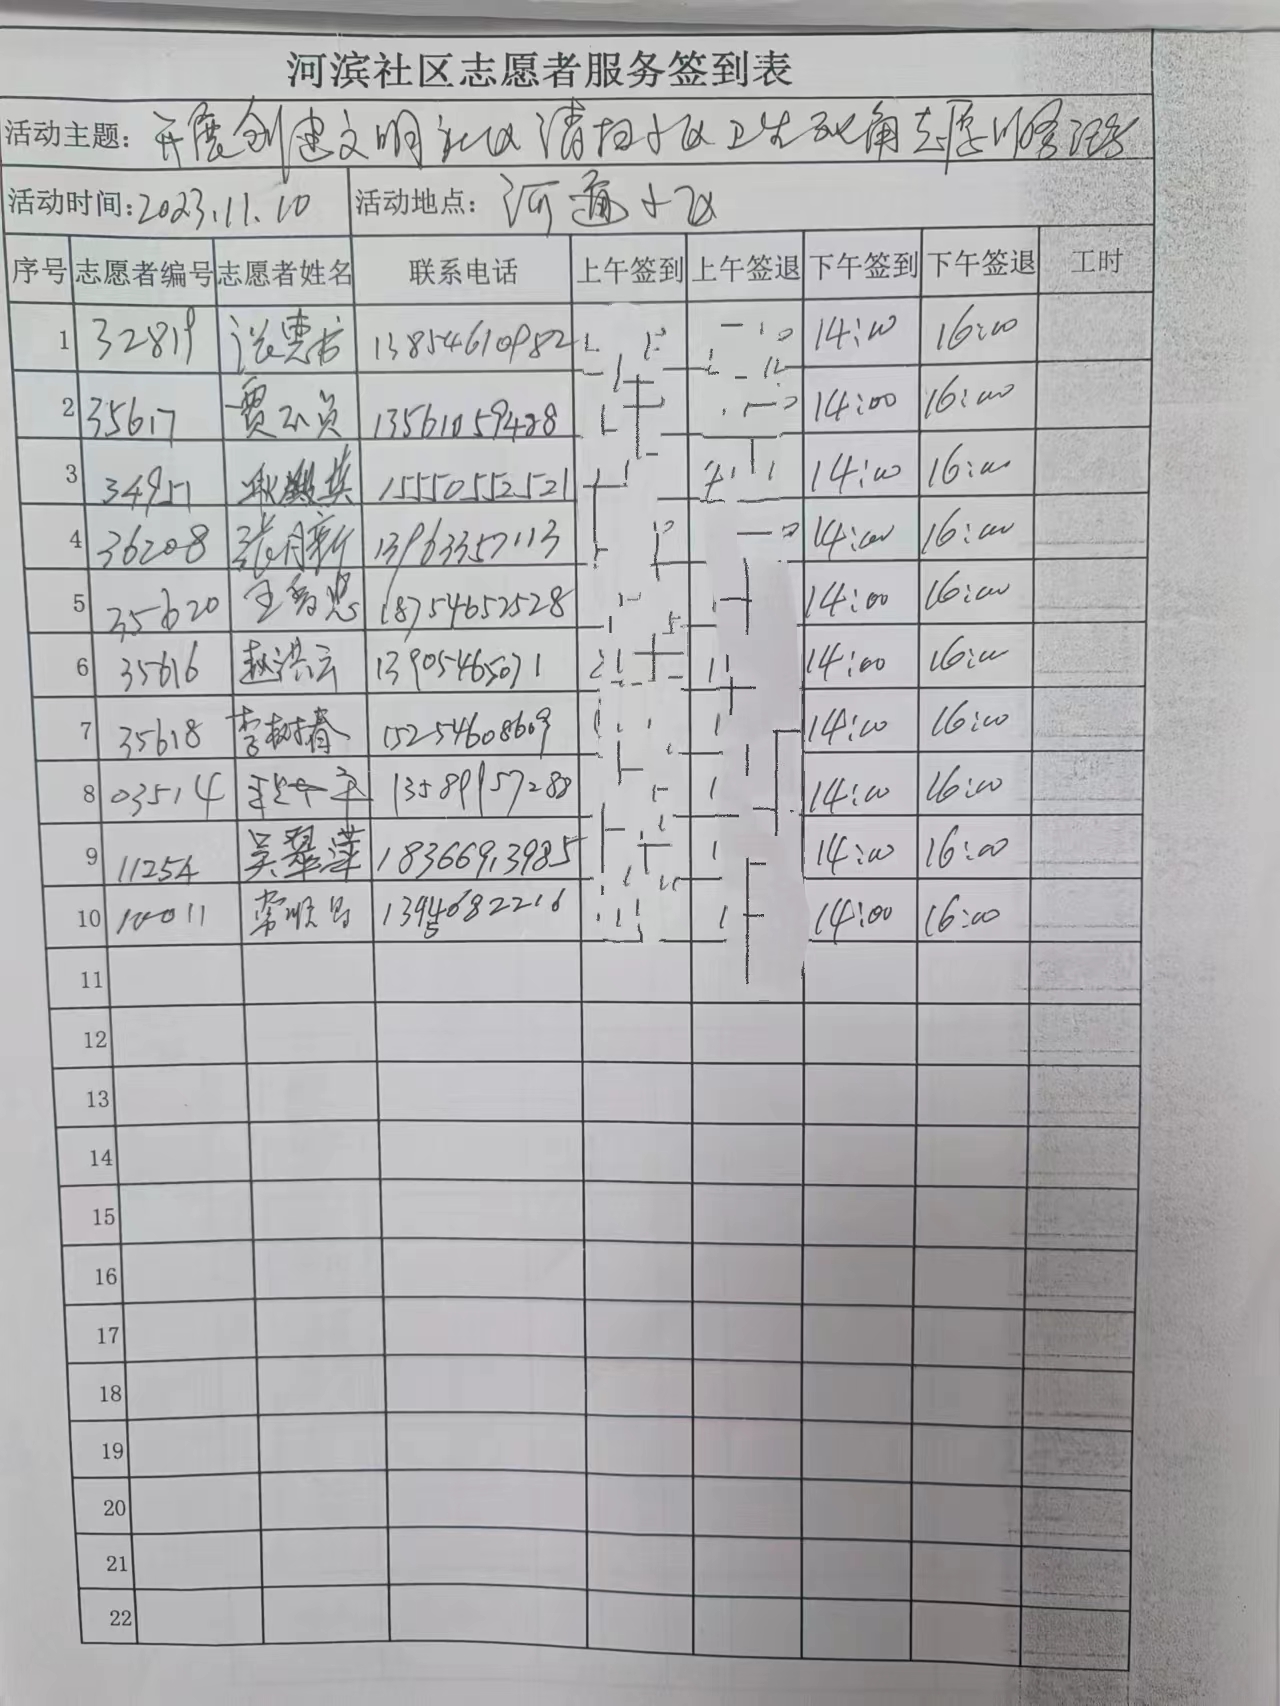 河滨社区志愿者服务签到表
活动主题：开展创建文明社区清扫小区卫生死角志愿服务活动
活动时间：2023.11.10 活动地点：河通小区
序号 志愿者编号 志愿者姓名 联系电话 上午签到 上午签退 下午签到 下午签退 工时
1 32819 13854610982 14:00 16:00
2 35617 13561059428 14:00 16:00
3 34951 15550552521 14:00 16:00
4 36208 张月新 13963357113 14:00 16:00
5 35620 18754652528 14:00 16:00
6 35616 赵洪云 13905465071 14:00 16:00
7 35618 李树春 15254608609 14:00 16:00
8 03514 13589957288 14:00 16:00
9 11254 吴翠萍 18366913985 14:00 16:00
10 10011 常顺昌 14:00 16:00
11
12
13
14
15
16
17
18
19
20
21
22